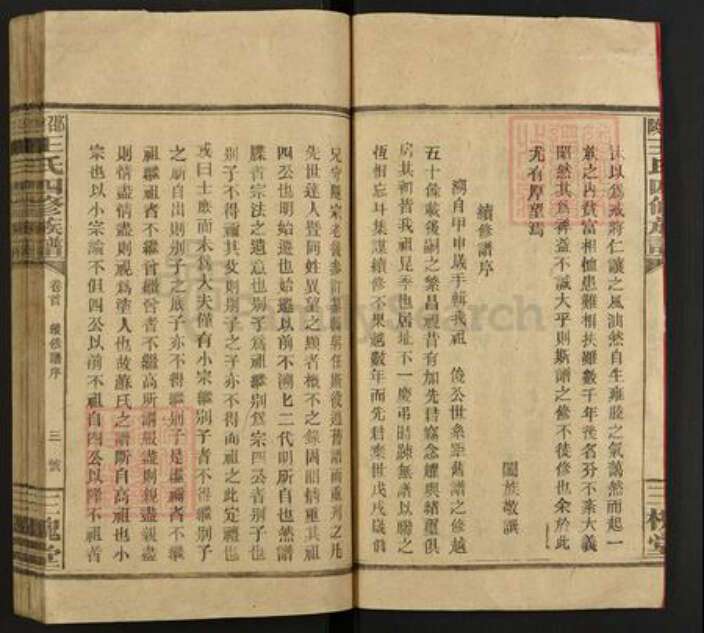 以爲戒將仁讓之風油然自生雍睦之氣藹然而起一
族之內貧富相恤患難相扶雖數千年後名分不紊大義
昭然其爲裨益不誠大乎則斯譜之修不徒修也余於此
尤有厚望焉
闔族敬譔
續修譜序
溯自甲申歲手輯我祖 俊公世系距舊譜之修越
五十餘載後嗣之繁昌視昔有加先君窩念續與緒墜俱
房其初皆我祖兄季也居址不一慶弔時疎無譜以聯之
恆相忘耳集謀續修不果越數年而先君棄世戊戌歲偕
兄
先世達人暨同姓異望之顯者概不之錄因韻情重其祖
四公也明始遷也始遷以前不溯七二代明所自也然譜
牒者宗法之遺意也別子爲祖繼別爲宗四公者別子也
別子不得禰其父則別子之子亦不得而祖之此定禮也
或曰士庶而未爲大夫僅有小宗繼別子者不得繼別子
之所自出則別子之庶子亦不得繼別子是繼禰者不繼
祖繼祖者不繼曾繼曾者不繼高所謂服盡則親盡親盡
則情盡情盡則視爲塗人也故蘇氏之譜斷自高祖也小
宗也以小宗論不但四公以前不祖自四公以降不祖者
王氏四修族譜
卷首 續修譜序
三 號
三槐堂
FamilySearch